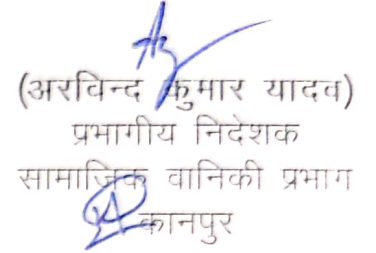 (अरविन्द कुमार यादव)
प्रभागीय निदेशक
सामाजिक वानिकी प्रभाग
कानपुर